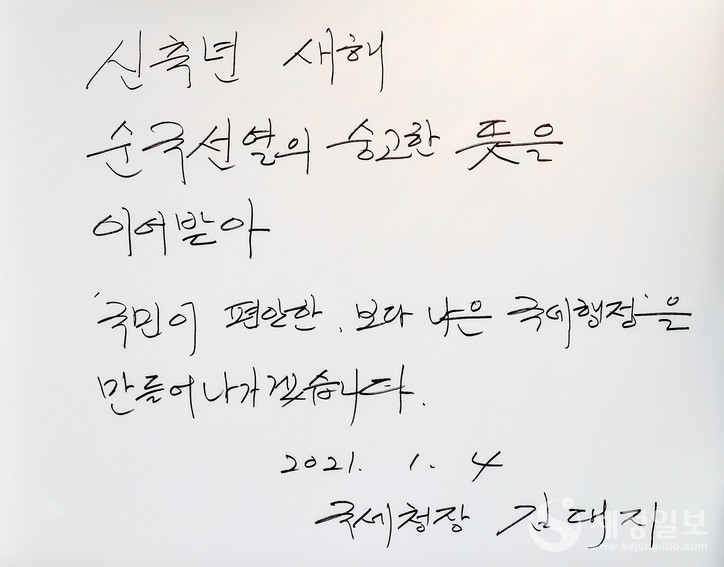 신축년 새해
순국선열의 숭고한 뜻을
이어받아
'국민이 편안한, 보다 나은 국세행정'을
만들어나가겠습니다.
2021. 1. 4
국세청장 김대지
세정일보
www.sejungilbo.com